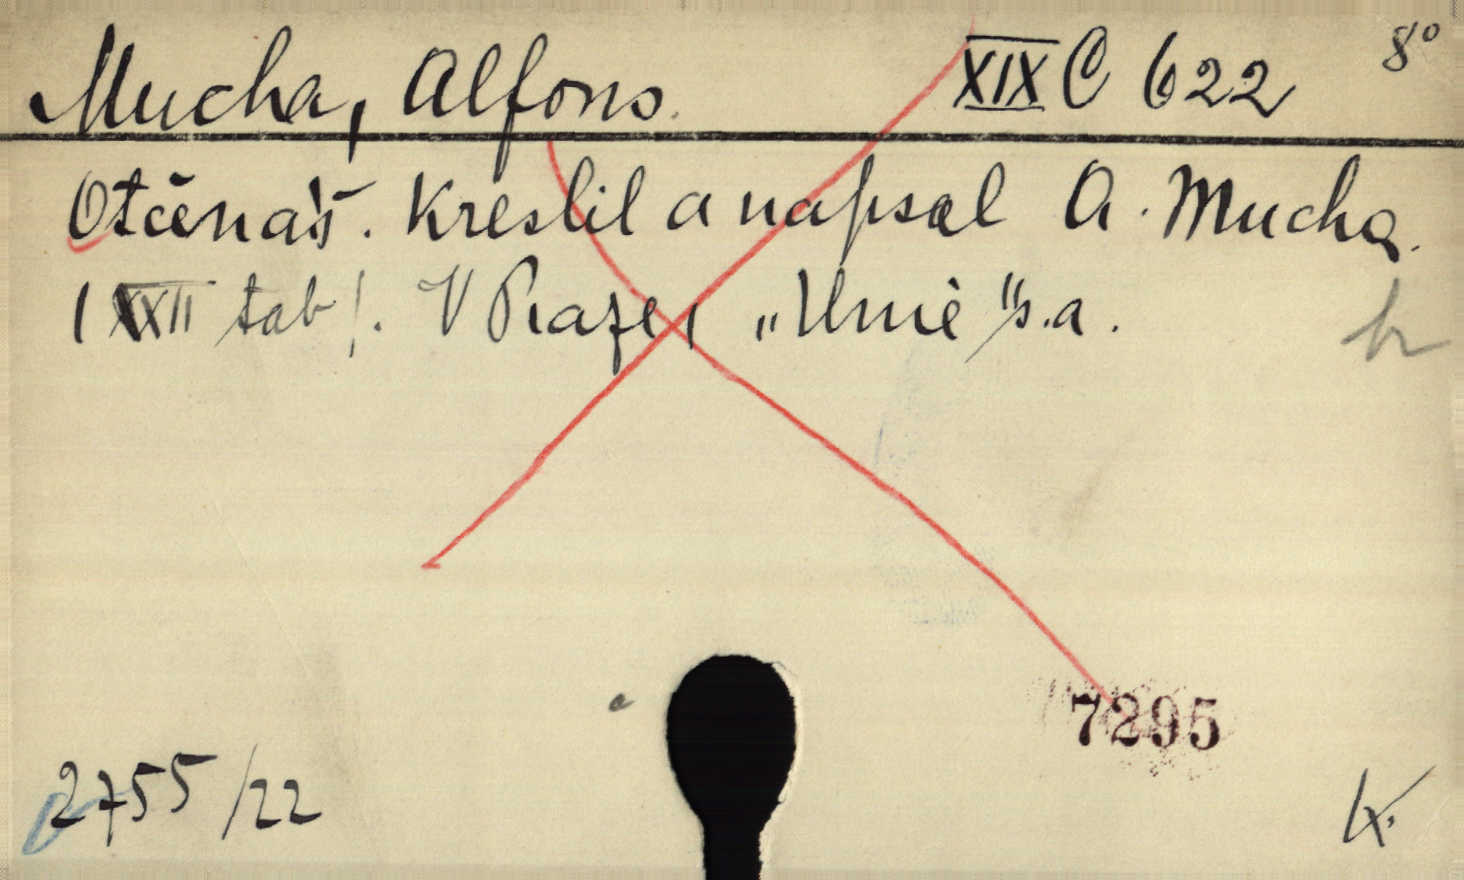 Mucha, Alfons. XIX C 622 8°
Otčenáš. Kreslil a napsal A. Mucha.
(XXII tab). V Praze, „Unie" s.a.
2755/22
7295